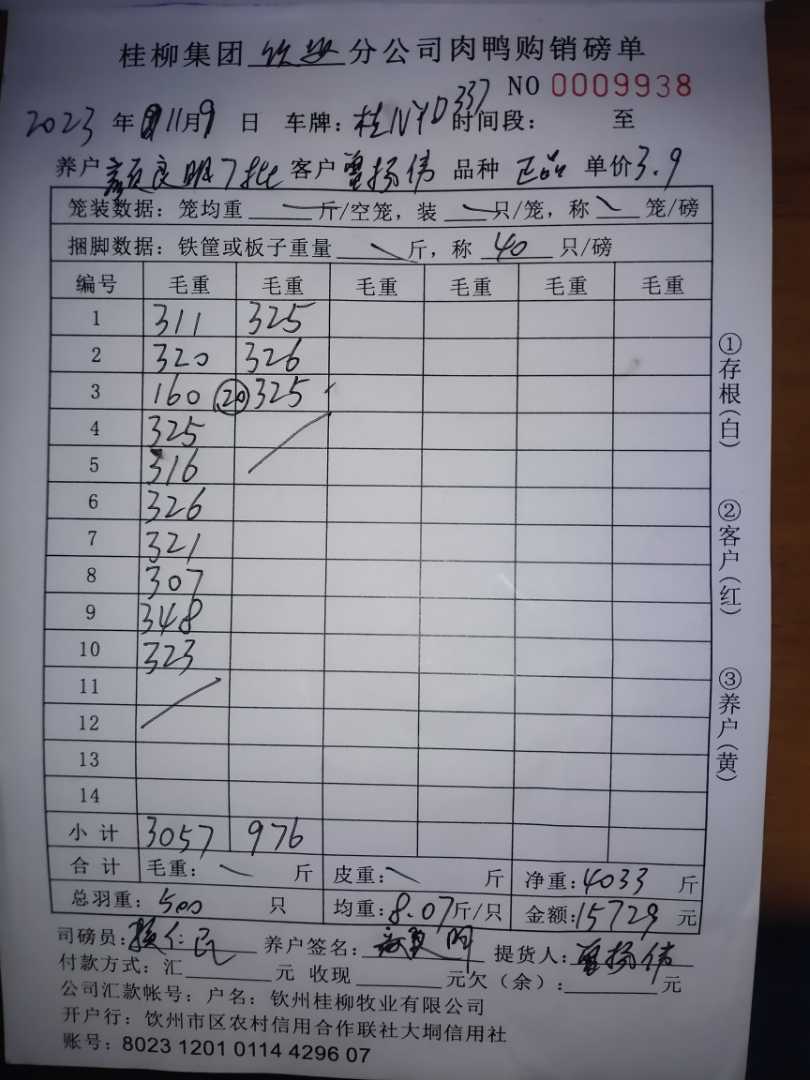 桂柳集团 钦州 分公司肉鸭购销磅单
NO 0009938
2023 年 11月9 日 车牌：桂NYD337 时间段： 至
养户 颜良明7批 客户 曾扬伟 品种 正品 单价3.9
笼装数据：笼均重 斤/空笼，装 只/笼，称 笼/磅
捆脚数据：铁筐或板子重量 斤，称 40 只/磅
编号 毛重 毛重 毛重 毛重 毛重 毛重
1 311 325
2 320 326
3 160 20 325
4 325
5 316
6 326
7 321
8 307
9 348
10 323
11
12
13
14
小计 3057 976
合计 毛重： 斤 皮重： 斤 净重：4033 斤
总羽重：500 只 均重：8.07斤/只 金额：15729 元
司磅员： 养户签名：颜良明 提货人：曾扬伟
付款方式：汇 元 收现 元欠（余）： 元
公司汇款帐号：户名：钦州桂柳牧业有限公司
开户行：钦州市区农村信用合作联社大垌信用社
账号：8023 1201 0114 4296 07
①存根（白）
②客户（红）
③养户（黄）